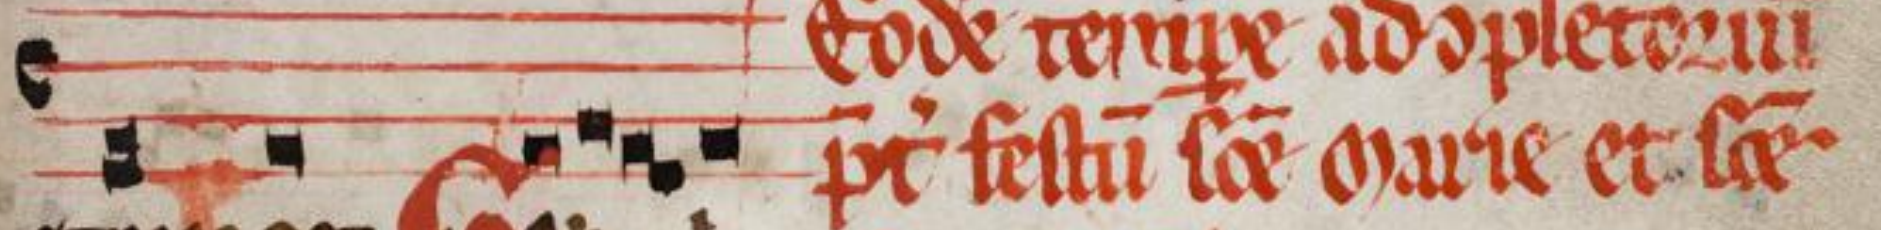 Eodē temp̱e ad ɔpletoriū
p̄t' festū sc̄e Marie et sc̄e